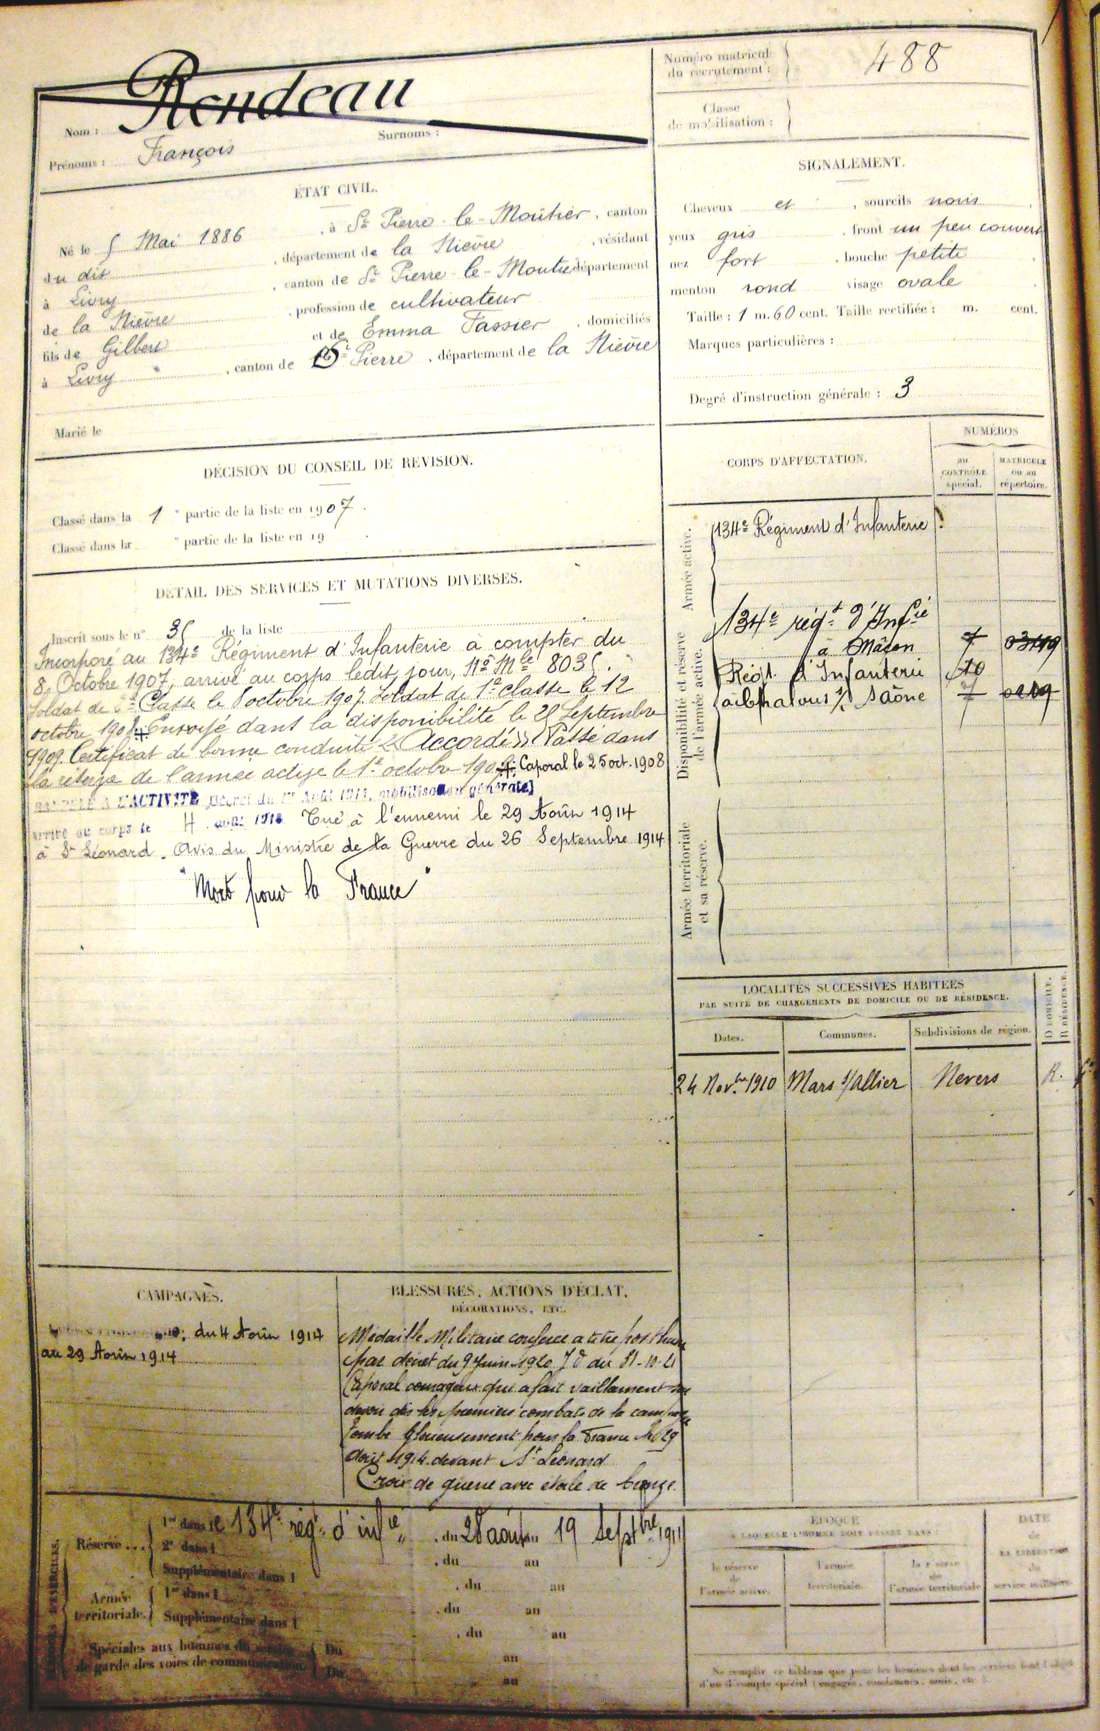 Numéro matricule
du recrutement :
488
Classe
de mobilisation :
Rendeau
Nom :
Surnoms :
Prénoms : François
ÉTAT CIVIL.
Né le 5 Mai 1886, à St Pierre-le-Moûtier, canton
du dit, département de la Nièvre, résidant
à Livry, canton de St Pierre-le-Moutier département
de la Nièvre, profession de cultivateur
fils de Gilbert et de Emma Tassier, domiciliés
à Livry, canton de St Pierre, département de la Nièvre
Marié le
SIGNALEMENT.
Cheveux et, sourcils noirs
yeux gris, front un peu couvert
nez fort, bouche petite
menton rond visage ovale
Taille : 1 m. 60 cent. Taille rectifiée : m. cent.
Marques particulières :
Degré d'instruction générale : 3
DÉCISION DU CONSEIL DE REVISION.
Classé dans la 1e partie de la liste en 1907.
Classé dans la e partie de la liste en 19
DÉTAIL DES SERVICES ET MUTATIONS DIVERSES.
Inscrit sous le n° 35 de la liste
Incorporé au 134e Régiment d'Infanterie à compter du
8 Octobre 1907, arrivé au corps ledit jour, No Mle 8035.
Soldat de 2e Classe le 8 octobre 1907. Soldat de 1e classe le 12
octobre 1908. Envoyé dans la disponibilité le 25 Septembre
1909. Certificat de bonne conduite "Accordé" Passé dans
la réserve de l'armée active le 1er octobre 1909. Caporal le 25 oct. 1908
RAPPELÉ A L'ACTIVITÉ (Décret du 1er Août 1914, mobilisation générale)
Arrivé au corps le 4 août 1914 Tué à l'ennemi le 29 Août 1914
à St Léonard. Avis du Ministre de la Guerre du 26 Septembre 1914
"Mort pour la France"
CORPS D'AFFECTATION.
NUMÉROS
au
CONTRÔLE
spécial.
MATRICULE
ou au
répertoire.
Armée active.
134e Régiment d'Infanterie
Disponibilité et réserve
de l'armée active.
134e régt d'Infie
à Mâcon
Régt d'Infanterie
à Chalons s/ Saône
Armée territoriale
et sa réserve.
LOCALITÉS SUCCESSIVES HABITÉES
PAR SUITE DE CHANGEMENTS DE DOMICILE OU DE RÉSIDENCE.
Dates.
Communes.
Subdivisions de région.
D DOMICILE.
R RÉSIDENCE.
24 Novbre 1910 Mars s/Allier Nevers R.
CAMPAGNES.
du 4 Août 1914
au 29 Août 1914
BLESSURES, ACTIONS D'ÉCLAT,
DÉCORATIONS, ETC.
Médaille Militaire conférée à titre posthume
par décret du 9 Juin 1920 J O du 31-10-21
Caporal courageux qui a fait vaillamment son
devoir dès les premiers combats de la campagne
Tombé glorieusement pour la France le 29
Août 1914 devant St Léonard
Croix de guerre avec étoile de bronze.
Réserve...
1re dans le 134e régt d'infie, du 28 août au 19 Septbre 1911
2e dans l , du au
Supplémentaire dans l , du au
Armée
territoriale.
1re dans l , du au
Supplémentaire dans l , du au
Spéciales aux hommes du service
de garde des voies de communication
Du au
Du au
ÉPOQUE
A LAQUELLE L'HOMME DOIT PASSER DANS :
la réserve
de
l'armée active.
l'armée
territoriale.
la réserve
de
l'armée territoriale
DATE
de
LA LIBÉRATION
du
service militaire.
Ne remplir ce tableau que pour les hommes dont les services font l'objet
d'un décompte spécial (engagés, condamnés, omis, etc.).